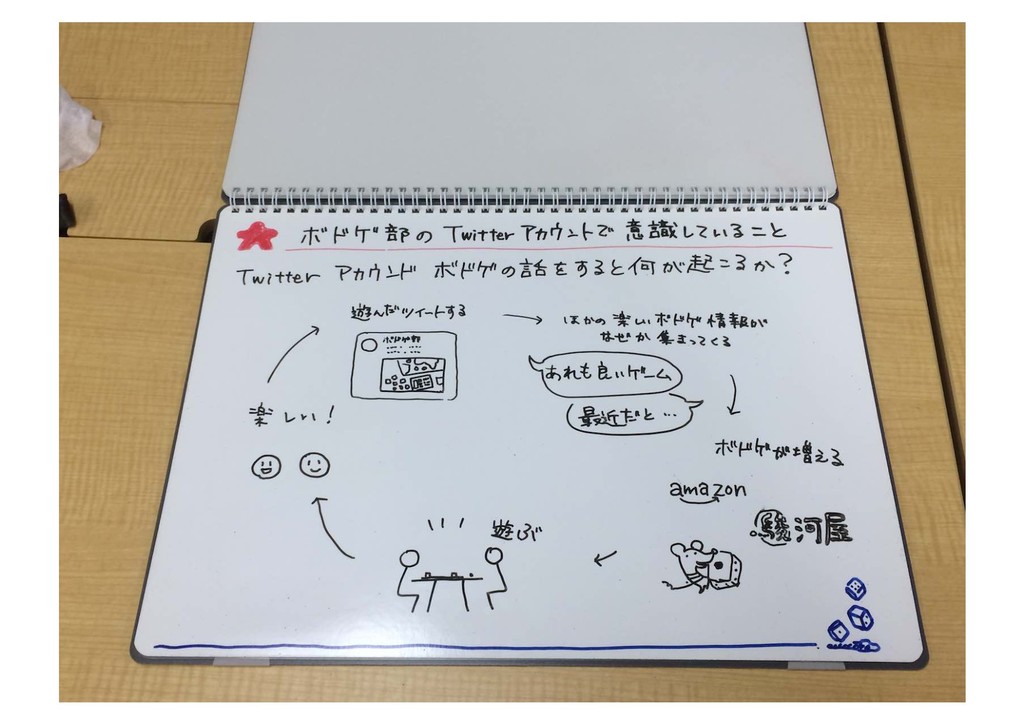 ボドゲ部の Twitterアカウントで 意識していること
Twitter アカウンド ボドゲの話をすると何が起こるか?
遊んだツイートする
ボドゲ部
ほかの 楽しいボドゲ情報が
なぜか 集まってくる
あれも良いゲーム
最近だと…
ボドゲが増える
amazon
駿河屋
遊ぶ
楽しい!